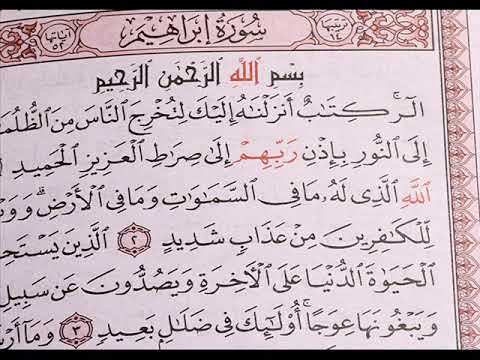 ترتيبها سُورَةُ إِبْرَاهِيم آياتها ٥٢
بِسْمِ ٱللَّهِ ٱلرَّحْمَٰنِ ٱلرَّحِيمِ
الٓر ۚ كِتَٰبٌ أَنزَلْنَٰهُ إِلَيْكَ لِتُخْرِجَ ٱلنَّاسَ مِنَ ٱلظُّلُمَ
إِلَى ٱلنُّورِ بِإِذْنِ رَبِّهِمْ إِلَىٰ صِرَٰطِ ٱلْعَزِيزِ ٱلْحَمِيدِ
ٱللَّهِ ٱلَّذِى لَهُۥ مَا فِى ٱلسَّمَٰوَٰتِ وَمَا فِى ٱلْأَرْضِ ۗ وَوَ
لِّلْكَٰفِرِينَ مِنْ عَذَابٍ شَدِيدٍ ٢ ٱلَّذِينَ يَسْتَحِ
ٱلْحَيَوٰةَ ٱلدُّنْيَا عَلَى ٱلْأَخِرَةِ وَيَصُدُّونَ عَن سَبِيلِ
وَيَبْغُونَهَا عِوَجًا ۚ أُو۟لَٰٓئِكَ فِى ضَلَٰلٍۭ بَعِيدٍ ٣ وَمَآ أَرْ